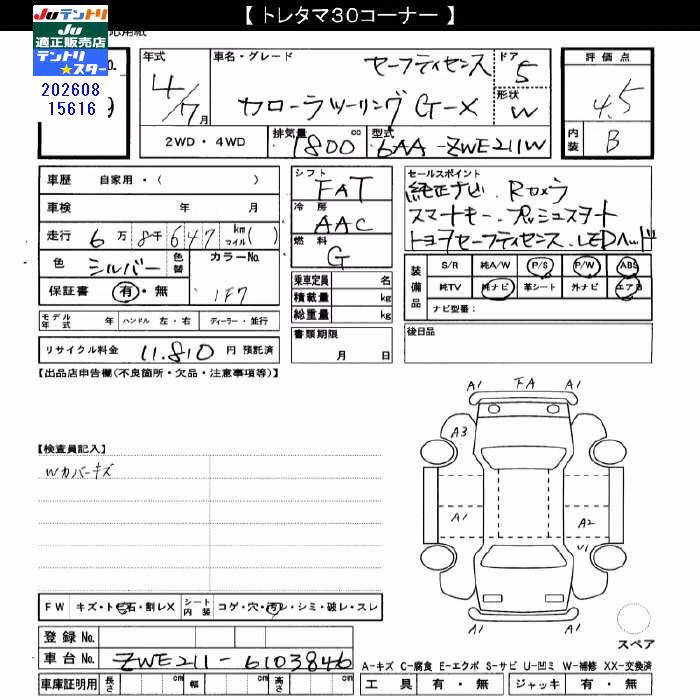 【 トレタマ30コーナー 】
Juテントリ
Ju
適正販売店
テントリ
★スター
202608
15616
年式 4/7月
車名・グレード セーフティセンス
カローラツーリング G-X
ドア 5
形状 W
評価点 4.5
内装 B
2WD・4WD 排気量 1800 cc 型式 6AA-ZWE211W
車歴 自家用・( )
車検 年 月
走行 6万8千647 km マイル( )
色 シルバー 色替 カラーNo. 1F7
保証書 有・無
モデル年式 年 ハンドル 左・右 ディーラー・並行
リサイクル料金 11.810 円 預託済
シフト FAT
冷房 AAC
燃料 G
乗車定員 名
積載量 kg
総重量 kg
書類期限
月 日
セールスポイント
純正ナビ.Rカメラ
スマートキー.プッシュスタート
トヨタセーフティセンス.LEDヘッド
装備品 S/R 純A/W P/S P/W ABS
純TV 純ナビ 革シート 外ナビ エアB
ナビ型番:
後日品
【出品店申告欄(不良箇所・欠品・注意事項等)】
【検査員記入】
Wカバーキズ
A1 FA A1
A1 A1
A3
A1
A2
FW キズ・ト石・割レX シート内装 コゲ・穴・汚レ・シミ・破レ・スレ
スペア
登録 No.
車台 No. ZWE211-6103846
A-キズ C-腐食 E-エクボ S-サビ U-凹ミ W-補修 XX-交換済
車庫証明用 長さ cm 幅 cm 高さ cm
工具 有・無 ジャッキ 有・無